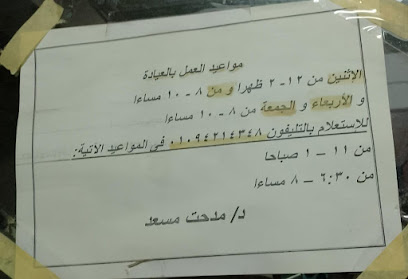 مواعيد العمل بالعيادة
الإثنين من ١٢-٢ ظهرا و من ٨ - ١٠ مساءا
و الأربعاء و الجمعة من ٨ - ١٠ مساءا
للاستعلام بالتليفون ٠١٠٩٤٢١٤٣٤٨ فى المواعيد الأتية:
من ١١ - ١ صباحا
من ٦:٣٠ - ٨ مساءا
د/ مدحت مسعد